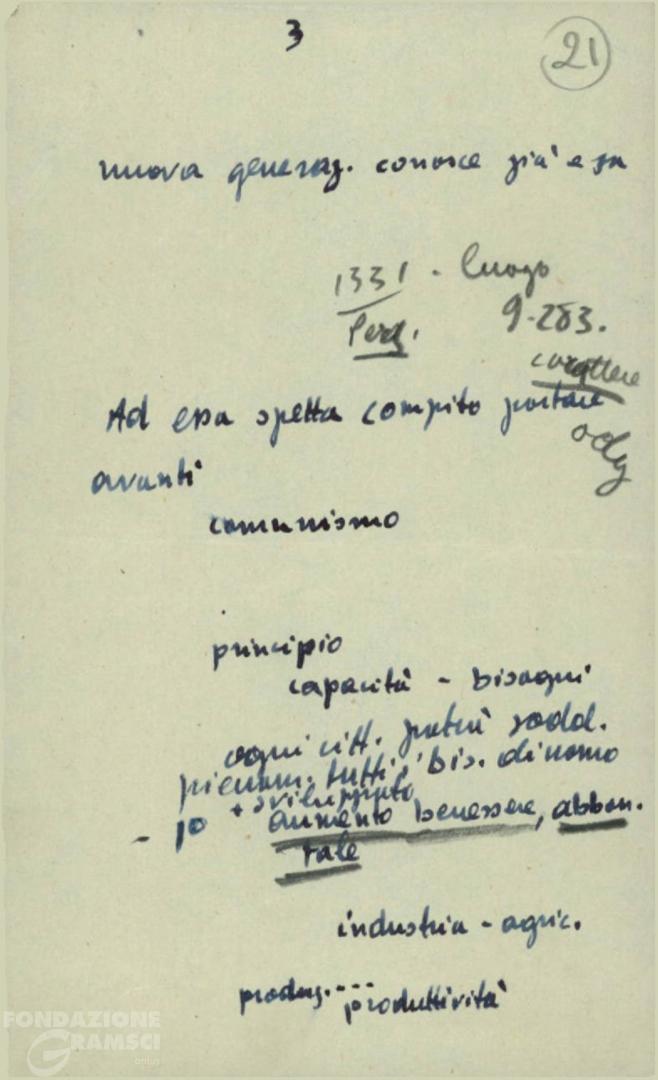 3
21
nuova generaz. conosce già e sa
1331 - luogo
Perz. 9-283.
carattere
Ad essa spetta compito portare
odg
avanti
comunismo
principio
capacità - bisogni
ogni citt. potrà sodd.
pienam. tutti i bis. di uomo
+ sviluppato
- 1º aumento benessere, abbon.
tale
industria - agric.
produz. .... produttività
FONDAZIONE
GRAMSCI
onlus